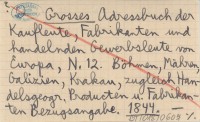 Grosses Adressbuch der
Kaufleute, Fabrikanten und
handelnden Gewerbsleute von
Europa, N. 12. Böhmen, Mähren,
Galizien, Krakau, zugleich Han-
delsgeogr. Producten u. Fabrikan-
ten Bezugsangabe. 1844. —